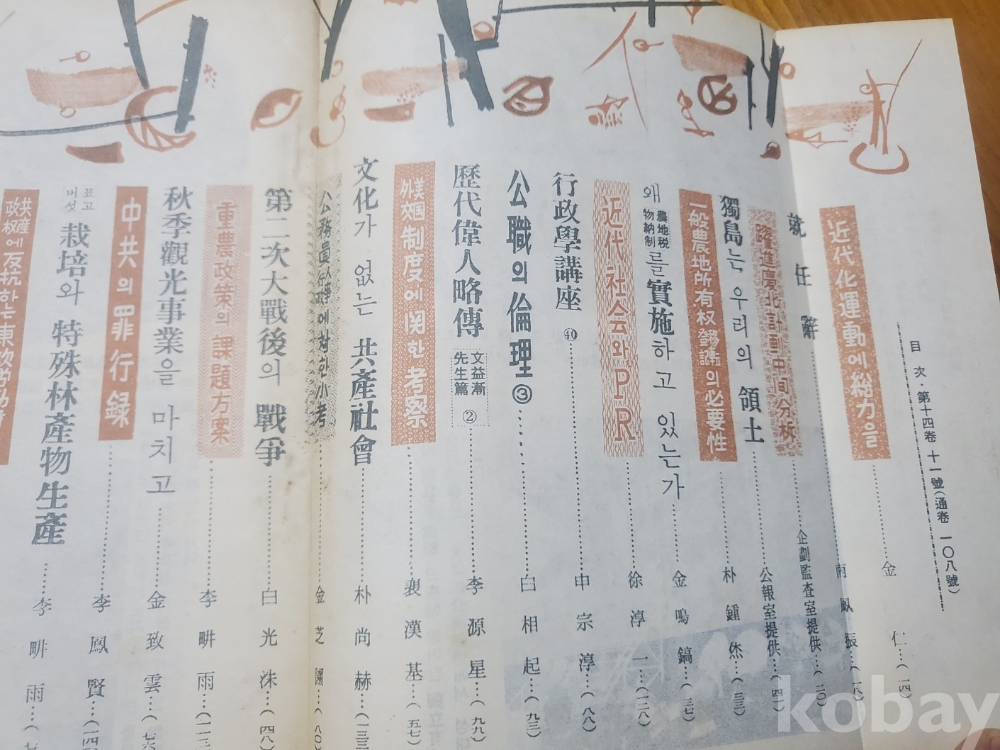 目次·第十四卷 十一號(通卷 一〇八號)
近代化運動에 総力을……金 仁…(一四
就任辭……南鳳振…(一八
躍進慶北計画中間分析……企劃監査室提供…(二〇
獨島는 우리의 領土……公報室提供…(四
一般農地所有权 의必要性……朴鍾烋…(三三
왜 農地税物納制를 實施하고 있는가……金鳴鎬…(三七
近代社会와 PR……徐淳一…(二八
行政學講座 ㊵……申宗淳…(八八
公職의 倫理 ③……白相起…(九三
歷代偉人略傳 文益漸先生篇 ②……李源星…(九九
美國外交制度에 관한 考察……裵漢基…(五七
文化가 없는 共產社會……朴尚赫…(一三
公務員 에 한 小考……金芝 …(八〇
第二次大戰後의 戰爭……白光洙…(四八
重農政策의 課題方案……李畊雨…(一三
秋季觀光事業을 마치고……金玫雲…(七六
中共의 罪行録……李鳳賢…(八四
표고버섯 栽培와 特殊林產物生產……李畊雨…(七
共産政权에 反抗한
kobay